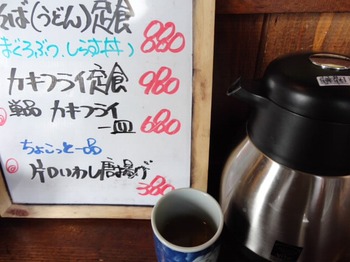 そば(うどん)定食 880
まぐろぶつ、しらす丼)
カキフライ定食 980
単品 カキフライ
一皿 680
ちょこっと一品
片口いわし唐揚げ
380